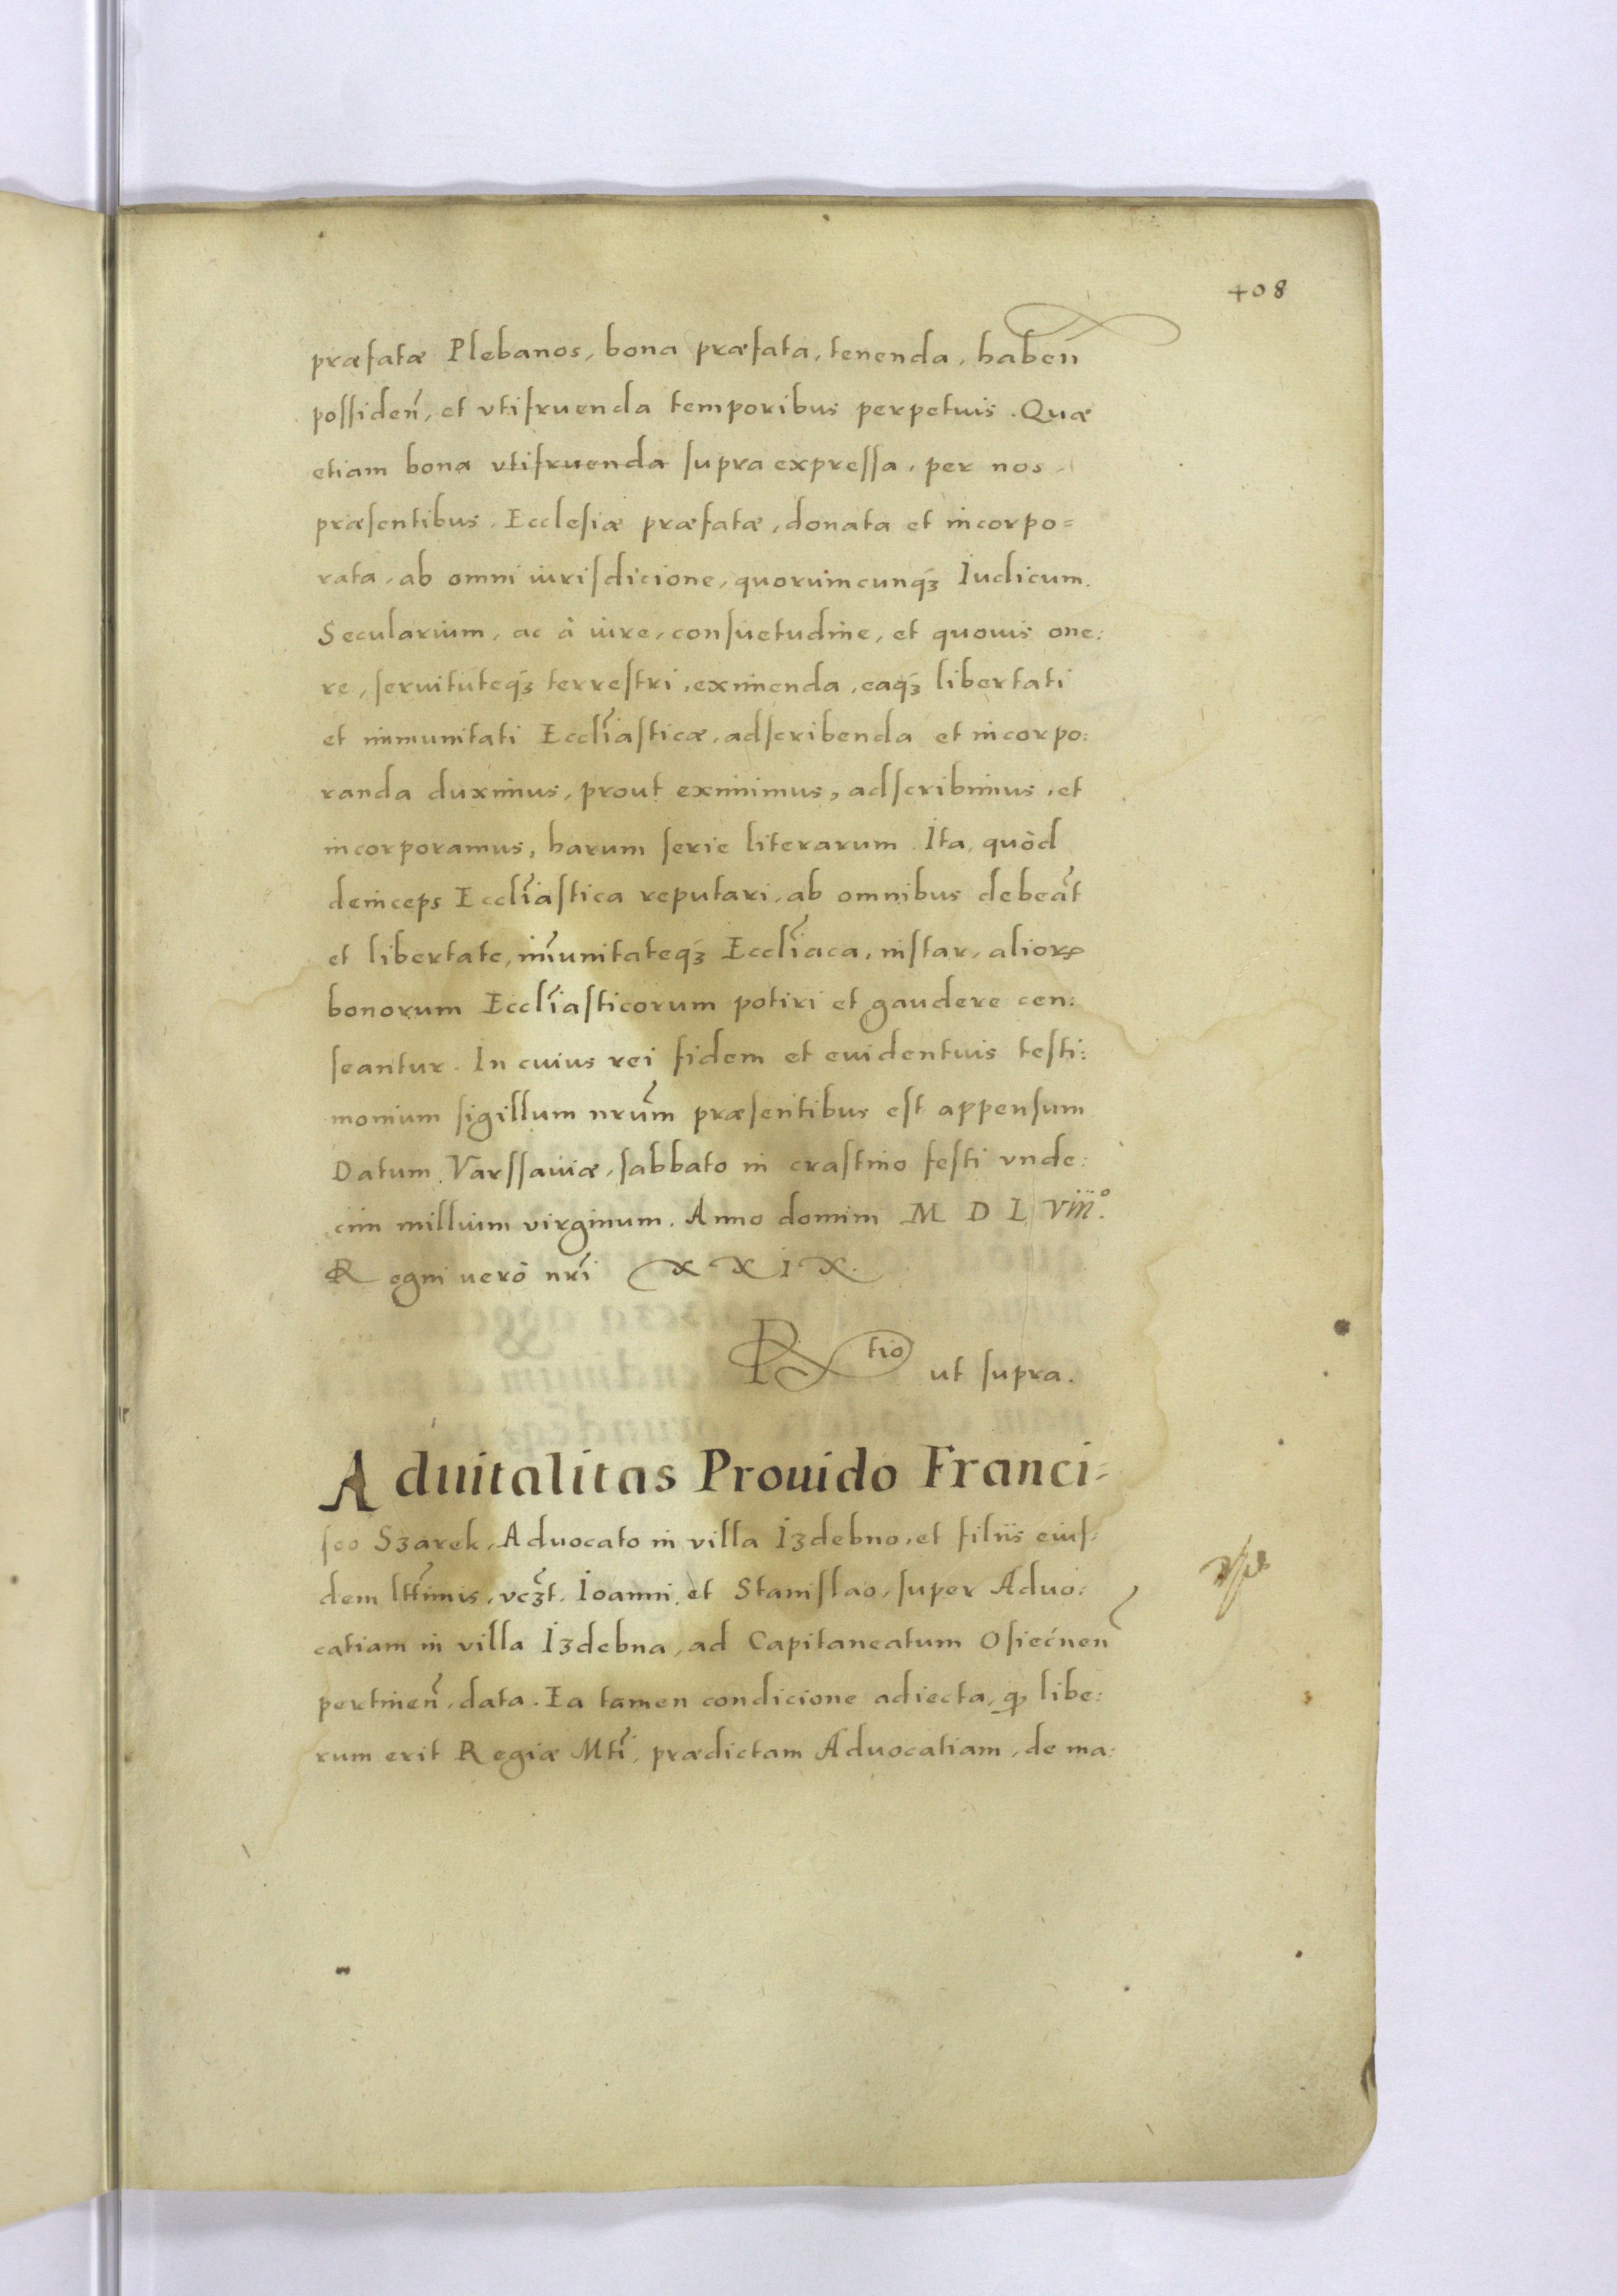 408
præfatæ Plebanos, bona præfata, tenenda, haben̄
possiden̄, et vtifruenda temporibus perpetuis. Quæ
etiam bona vtifruenda supra expressa, per nos
præsentibus, Ecclesiæ præfatæ, donata et incorpo=
rata, ab omni iurisdicione, quorumcunqꝫ Iudicum.
Secularium, ac à iure, consuetudine, et quouis one:
re, seruituteqꝫ terrestri, eximenda, eaqꝫ libertati
et immunitati Eccl̃iasticæ, adscribenda et incorpo:
randa duximus, prout eximimus, adscribimus, et
incorporamus, harum serie literarum. Ita, quòd
deinceps Eccl̃iastica reputari, ab omnibus debeãt
et libertate, im̃unitateqꝫ Eccl̃iaca, instar, aliorꝝ
bonorum Eccl̃iasticorum potiri et gaudere cen:
seantur. In cuius rei fidem et euidentius testi:
monium sigillum nrũm præsentibus est appensum
Datum Varssauiæ, sabbato in crastino festi vnde:
cim millium virginum. Anno domini M D L viiiº.
Regni uerò nr̃i XXIX.
Rtio ut supra.
Aduitalitas Prouido Franci=
sco Szarek, Aduocato in villa Izdebno, et filiis eius:
dem ltt̃imis, vcꝫt̃. Ioanni et Stanislao, super Aduo:
catiam in villa Izdebna, ad Capitaneatum Osiećnen̄
pertinen̄, data. Ea tamen condicione adiecta, ꝙ libe:
rum erit Regiæ Mtĩ, prædictam Aduocatiam, de ma: